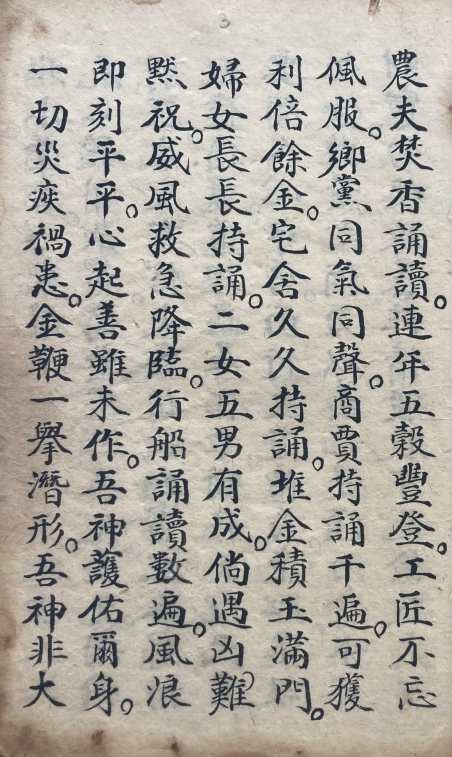 農夫焚香誦讀。連年五穀豐登。工匠不忘
佩服。鄉黨同氣同聲。商賈持誦千遍。可獲
利倍餘金。宅舍久久持誦。堆金積玉滿門。
婦女長長持誦。二女五男有成。倘遇凶難
黙祝。威風救急降臨。行船誦讀數遍。風浪
即刻平平。心起善雖未作。吾神護佑爾身。
一切災疾禍患。金鞭一舉潛形。吾神非大
3